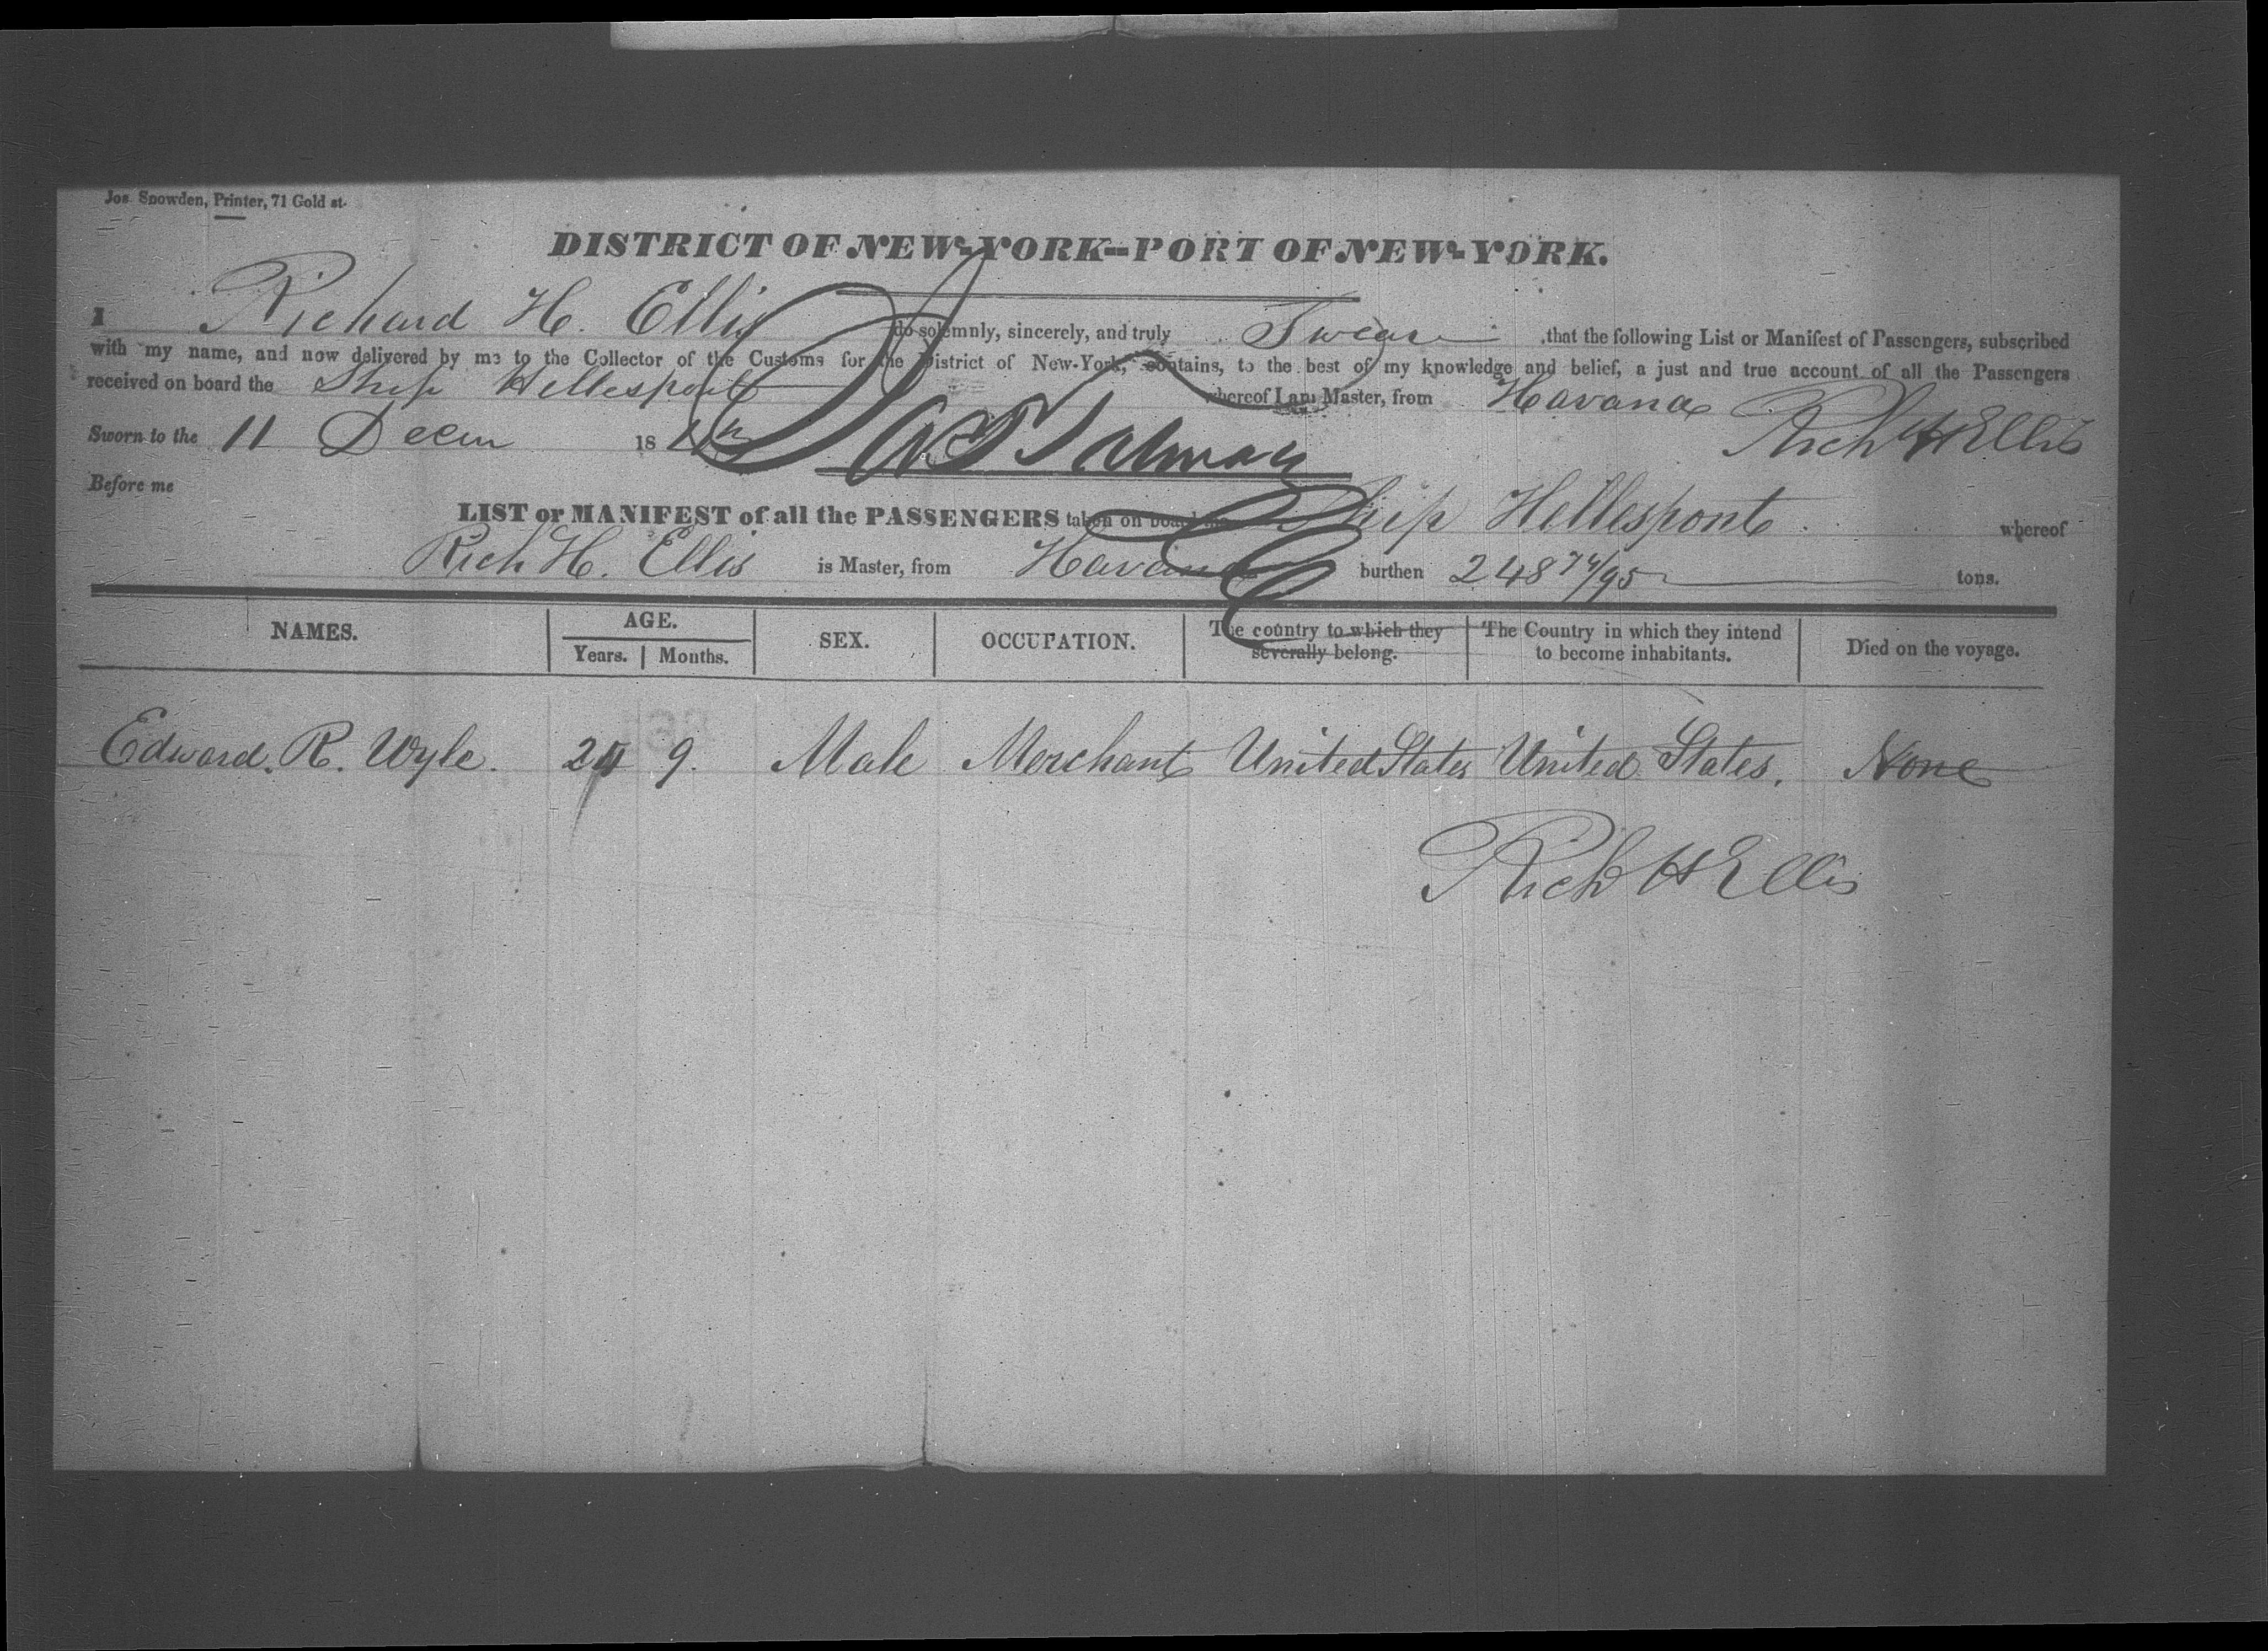 Jos. Snowden, Printer, 71 Gold st.
DISTRICT OF NEW-YORK--PORT OF NEW-YORK.
I Richard H. Ellis do solemnly, sincerely, and truly Swear that the following List or Manifest of Passengers, subscribed
with my name, and now delivered by me to the Collector of the Customs for the District of New-York, contains, to the best of my knowledge and belief, a just and true account of all the Passengers
received on board the Ship Hellespont whereof I am Master, from Havana
Sworn to the 11 Decm 18 Rich H Ellis
Before me
LIST or MANIFEST of all the PASSENGERS taken on board the Ship Hellespont whereof
Rich H. Ellis is Master, from Havana burthen 248 74/95 tons.
NAMES. AGE. Years. Months. SEX. OCCUPATION. The country to which they severally belong. The Country in which they intend to become inhabitants. Died on the voyage.
Edward. R. Wyle. 24 9. Male Merchant United States United States. None
Rich H Ellis